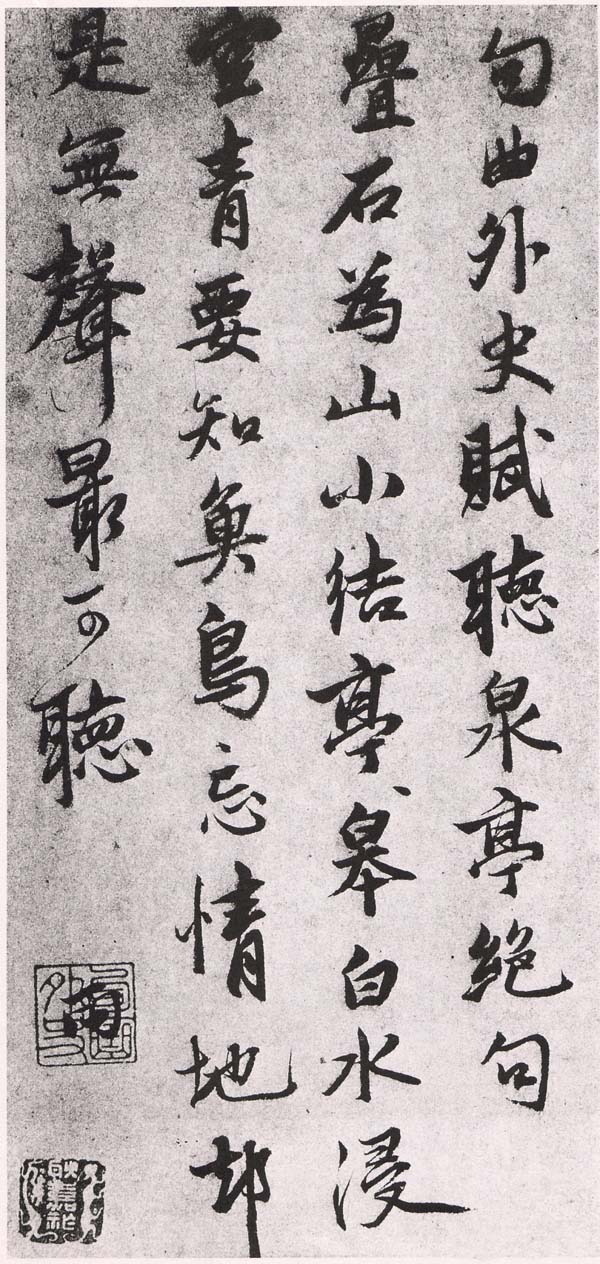 句曲外史賦聽泉亭絕句
疊石為山小結亭〻皋白水浸
空青要知魚鳥忘情地却
是無聲最可聽
雨
句曲外史